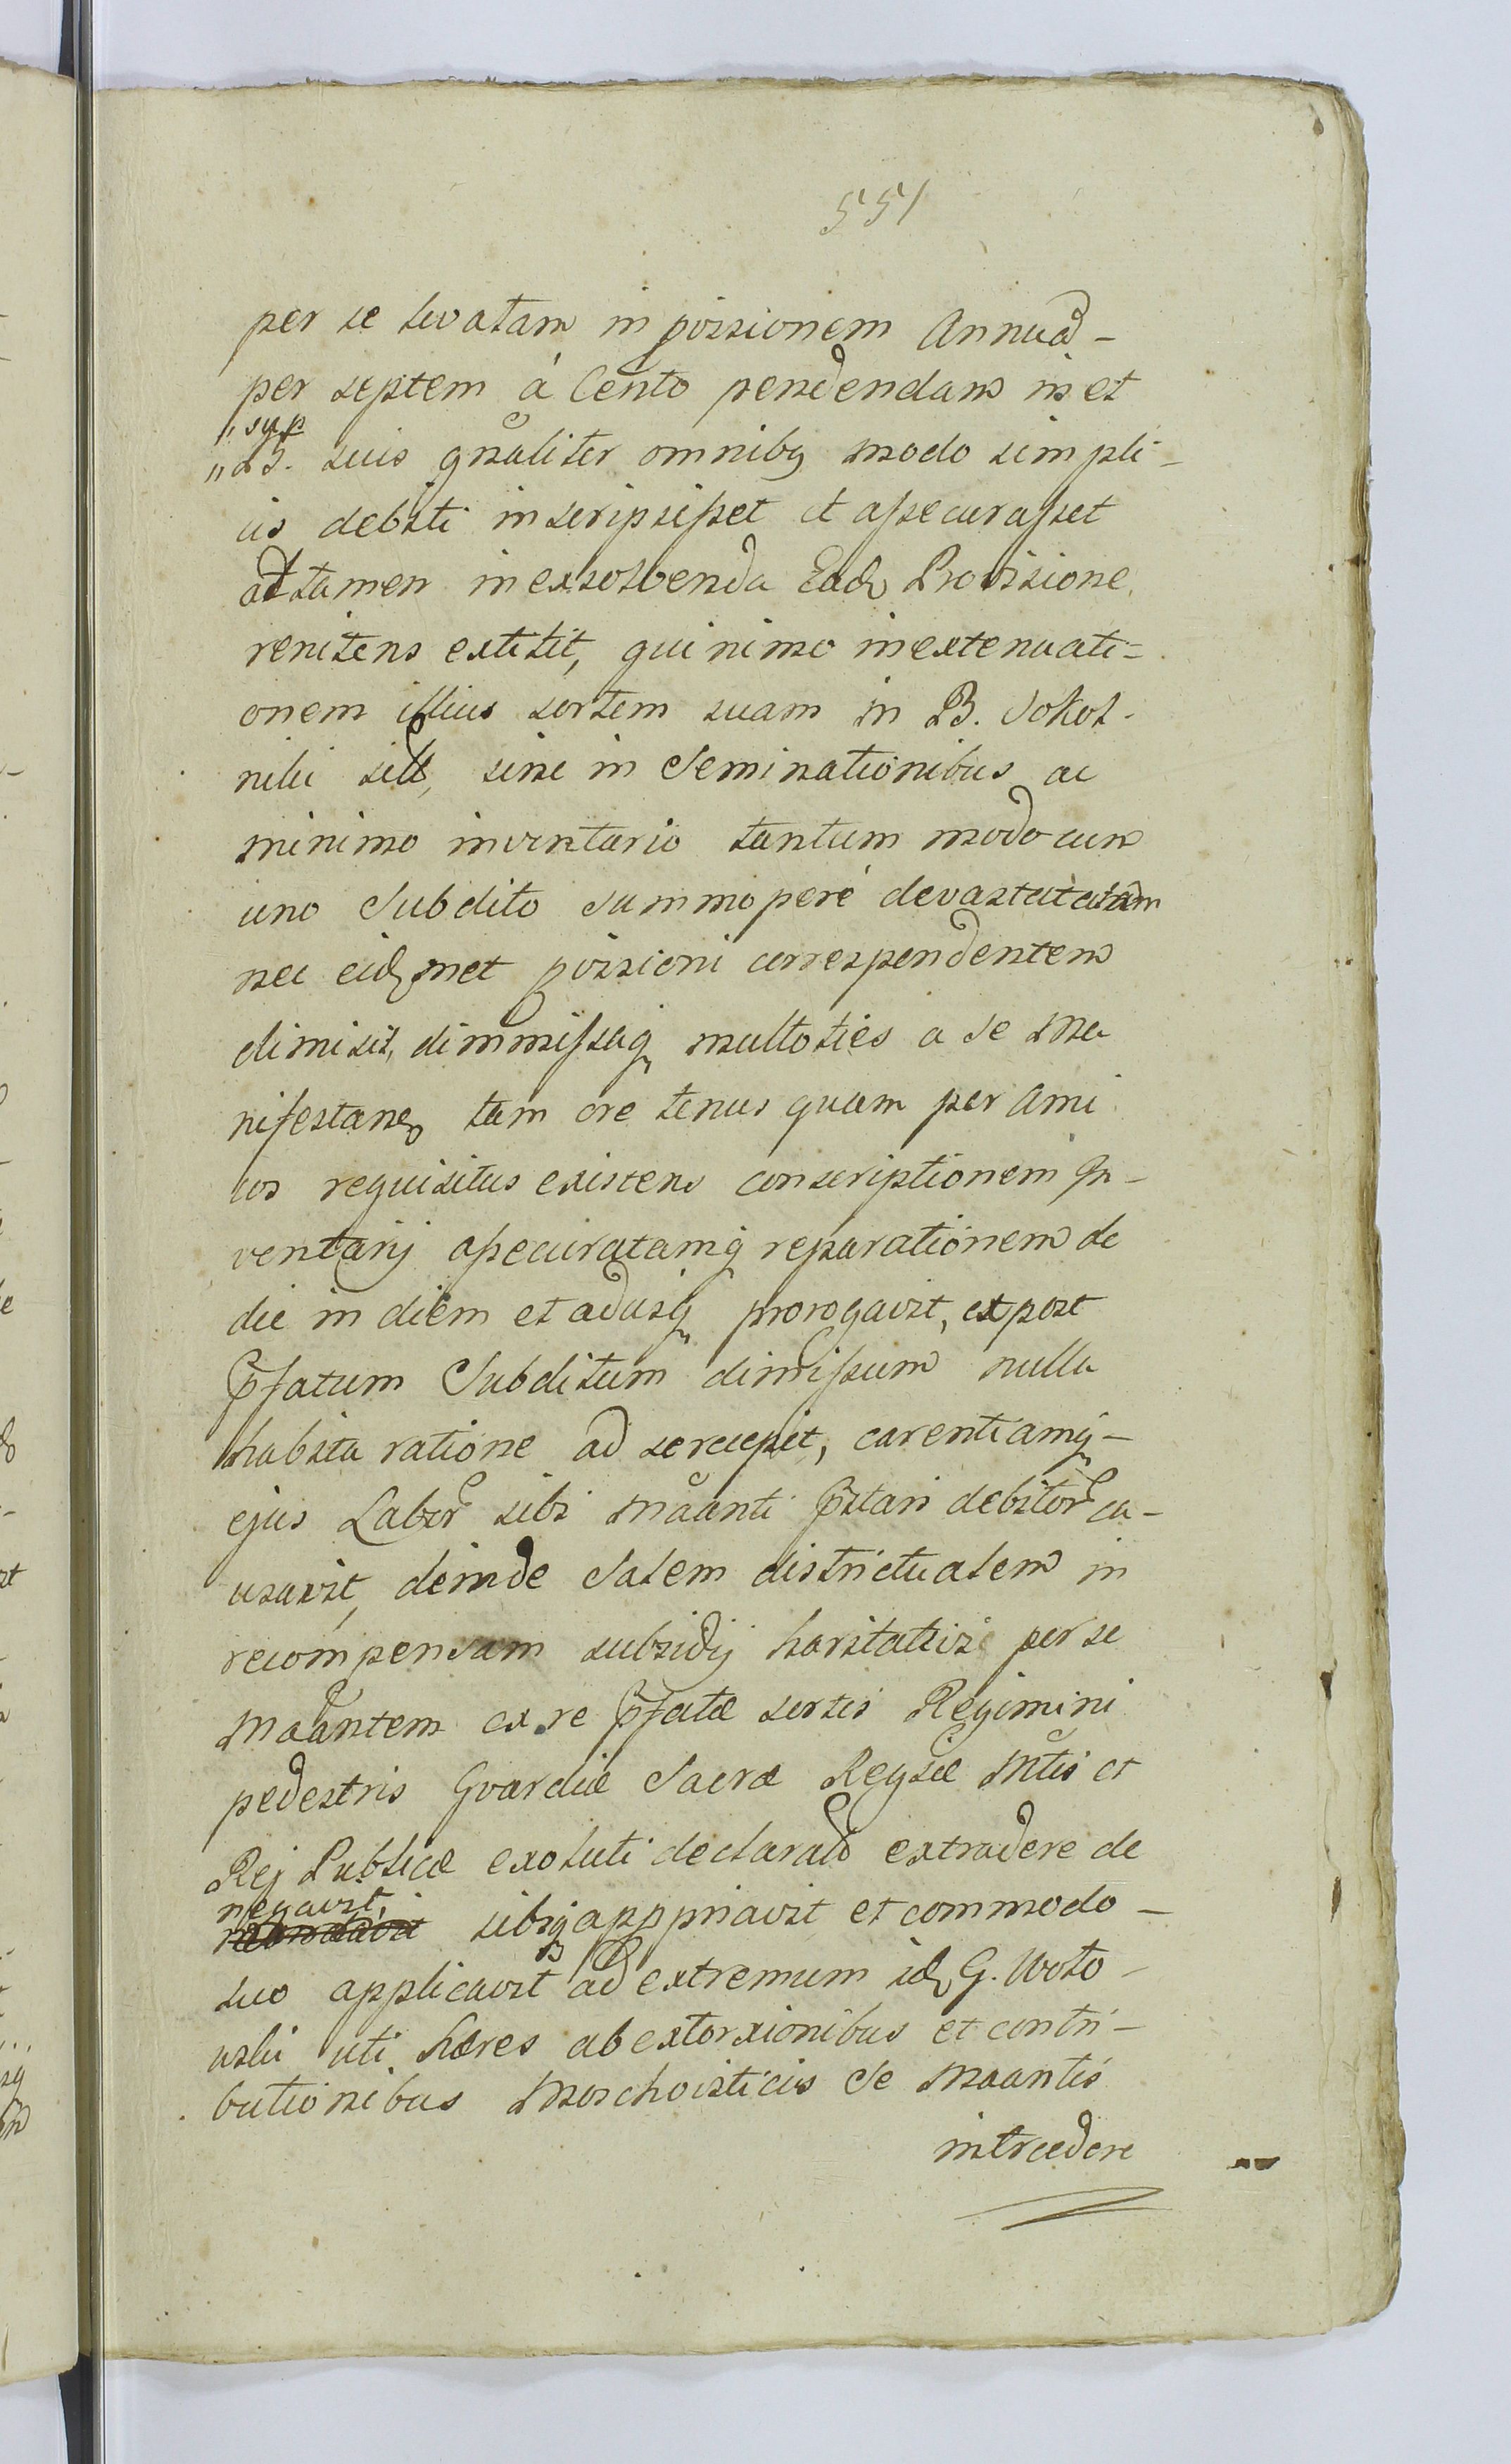 551
per se levatam in provisionem Annuã-
per septem á Cento pendendam in et
"sup
"ɑ̃. suis gñaliter omnibq modo simpli-
cis debiti inscripsisset et assecurasset
attamen in exsolvenda Ead Provisione
renitens extitit, qui nimo in extenuati-
onem illius sortem suam in B. Sokol-
niki sitã, sine in Seminationibus ac
minimo inventario tantum modo cum
uno Subdito summoperé devastatatam
nec eid met provisioni correspondentem
dimisit, dimmissaq multoties a Se Ma
nifestane tam ore tenus quam per Ami
cos requisitus existens conscriptionem In-
ventarij assecuratamq reparationem de
die in diem et adusq prorogavit, ex post
p̃fatum Subditum dimissum nulla
habita ratione ad se recepit, carentiamq-
ejus Labor sibi Mãanti p̃stari debitor ca-
usavit, deinde Salem districtualem in
recompensam subsidij haritativi per se
Mãantem ex re p̃fatæ sortis Regimini
pedestris Gvardiæ Sacræ Regiæ Mtis et
Rej Publicæ exoluti declaratũ extradere de
negavit,
sibiq appriavit et commodo-
suo applicavit ad extremum id G. Woto-
wski uti hæres ab extorsionibus et contri-
butionibus Moschoviticis Se Maantis
intrcedere